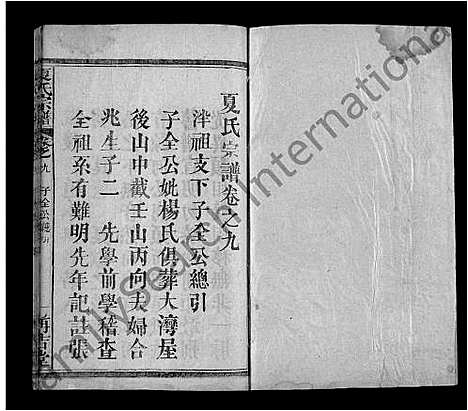 夏氏宗譜卷之九
泮祖支下子全公總引
子全公妣楊氏俱葬大灣屋
後山中截壬山丙向夫婦合
兆生子二　先學前學稽查
全祖系有難明先年記註張
夏氏宗譜
卷之九
子全公
familysearch International